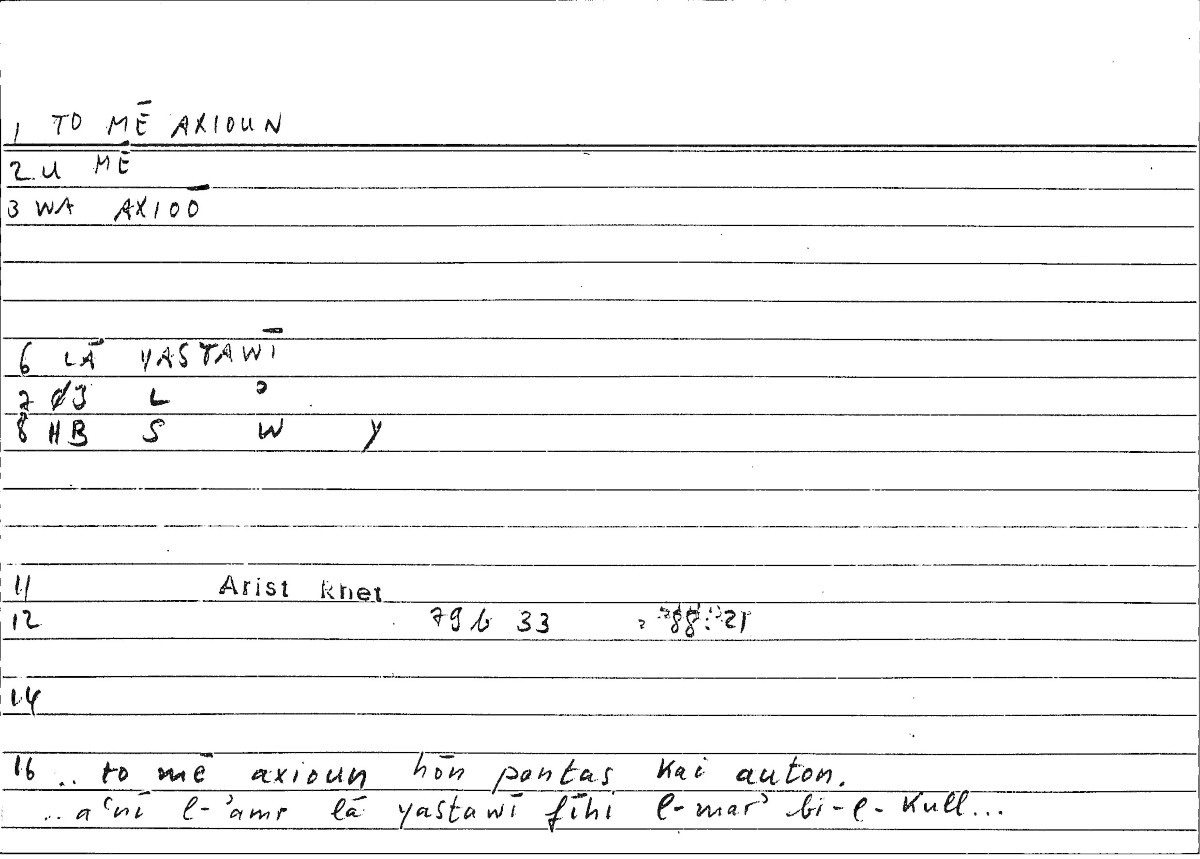 1 TO MĒ AXIOUN
2 U MĒ
3 WA AXIOŌ
6 LĀ YASTAWĪ
7 Ø3 L ʾ
8 HB S W Y
11 Arist Rhet
12 79 b 33 88 21
14
16 .. to mē axioun hōn pantas kai auton.
.. aʿnī l-ʾamr lā yastawī fīhi l-marʾ bi-l-Kull...